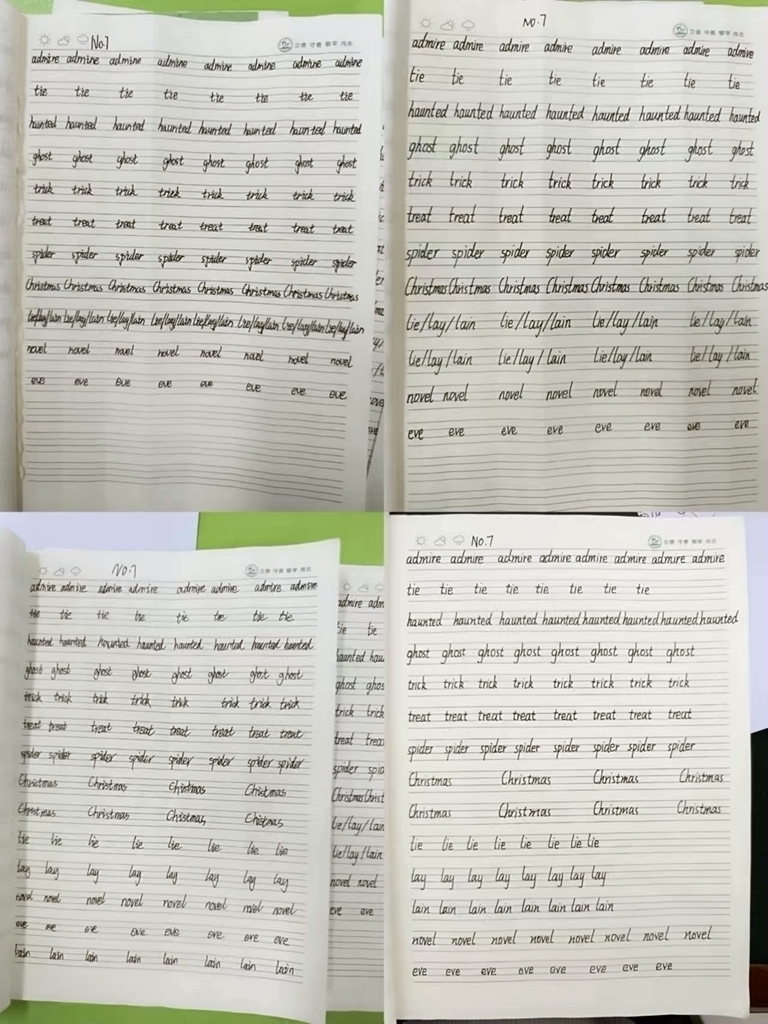 No.7
立德 守善 敏学 尚志
admire admire admire admire admire admire admire admire
tie tie tie tie tie tie tie tie
haunted haunted haunted haunted haunted haunted haunted haunted
ghost ghost ghost ghost ghost ghost ghost ghost
trick trick trick trick trick trick trick trick
treat treat treat treat treat treat treat treat
spider spider spider spider spider spider spider spider
Christmas Christmas Christmas Christmas Christmas Christmas Christmas Christmas
lie/lay/lain lie/lay/lain lie/lay/lain lie/lay/lain lie/lay/lain lie/lay/lain lie/lay/lain lie/lay/lain
novel novel novel novel novel novel novel novel
eve eve eve eve eve eve eve eve
NO.7
立德 守善 敏学 尚志
admire admire admire admire admire admire admire admire
tie tie tie tie tie tie tie tie
haunted haunted haunted haunted haunted haunted haunted haunted
ghost ghost ghost ghost ghost ghost ghost ghost
trick trick trick trick trick trick trick trick
treat treat treat treat treat treat treat treat
spider spider spider spider spider spider spider spider
Christmas Christmas Christmas Christmas Christmas Christmas Christmas Christmas
lie/lay/lain lie/lay/lain lie/lay/lain lie/lay/lain
lie/lay/lain lie/lay/lain lie/lay/lain lie/lay/lain
novel novel novel novel novel novel novel novel
eve eve eve eve eve eve eve eve
NO.7
立德 守善 敏学 尚志
admire admire admire admire admire admire admire admire
tie tie tie tie tie tie tie tie
haunted haunted haunted haunted haunted haunted haunted haunted
ghost ghost ghost ghost ghost ghost ghost ghost
trick trick trick trick trick trick trick trick
treat treat treat treat treat treat treat treat
spider spider spider spider spider spider spider spider
Christmas Christmas Christmas Christmas
Christmas Christmas Christmas Christmas
lie lie lie lie lie lie lie lie
lay lay lay lay lay lay lay lay
novel novel novel novel novel novel novel novel
eve eve eve eve eve eve eve eve
lain lain lain lain lain lain lain
admire
tie tie
haunted
ghost
trick trick
treat
spider
Christmas
lie/lay/lain
lie/lay/lain
novel novel
eve eve
NO.7
立德 守善 敏学 尚志
admire admire admire admire admire admire admire admire
tie tie tie tie tie tie tie
haunted haunted haunted haunted haunted haunted haunted haunted
ghost ghost ghost ghost ghost ghost ghost ghost
trick trick trick trick trick trick trick trick
treat treat treat treat treat treat treat treat
spider spider spider spider spider spider spider spider
Christmas Christmas Christmas Christmas
Christmas Christmas Christmas Christmas
lie lie lie lie lie lie lie lie
lay lay lay lay lay lay lay lay
lain lain lain lain lain lain lain lain
novel novel novel novel novel novel novel novel
eve eve eve eve eve eve eve eve